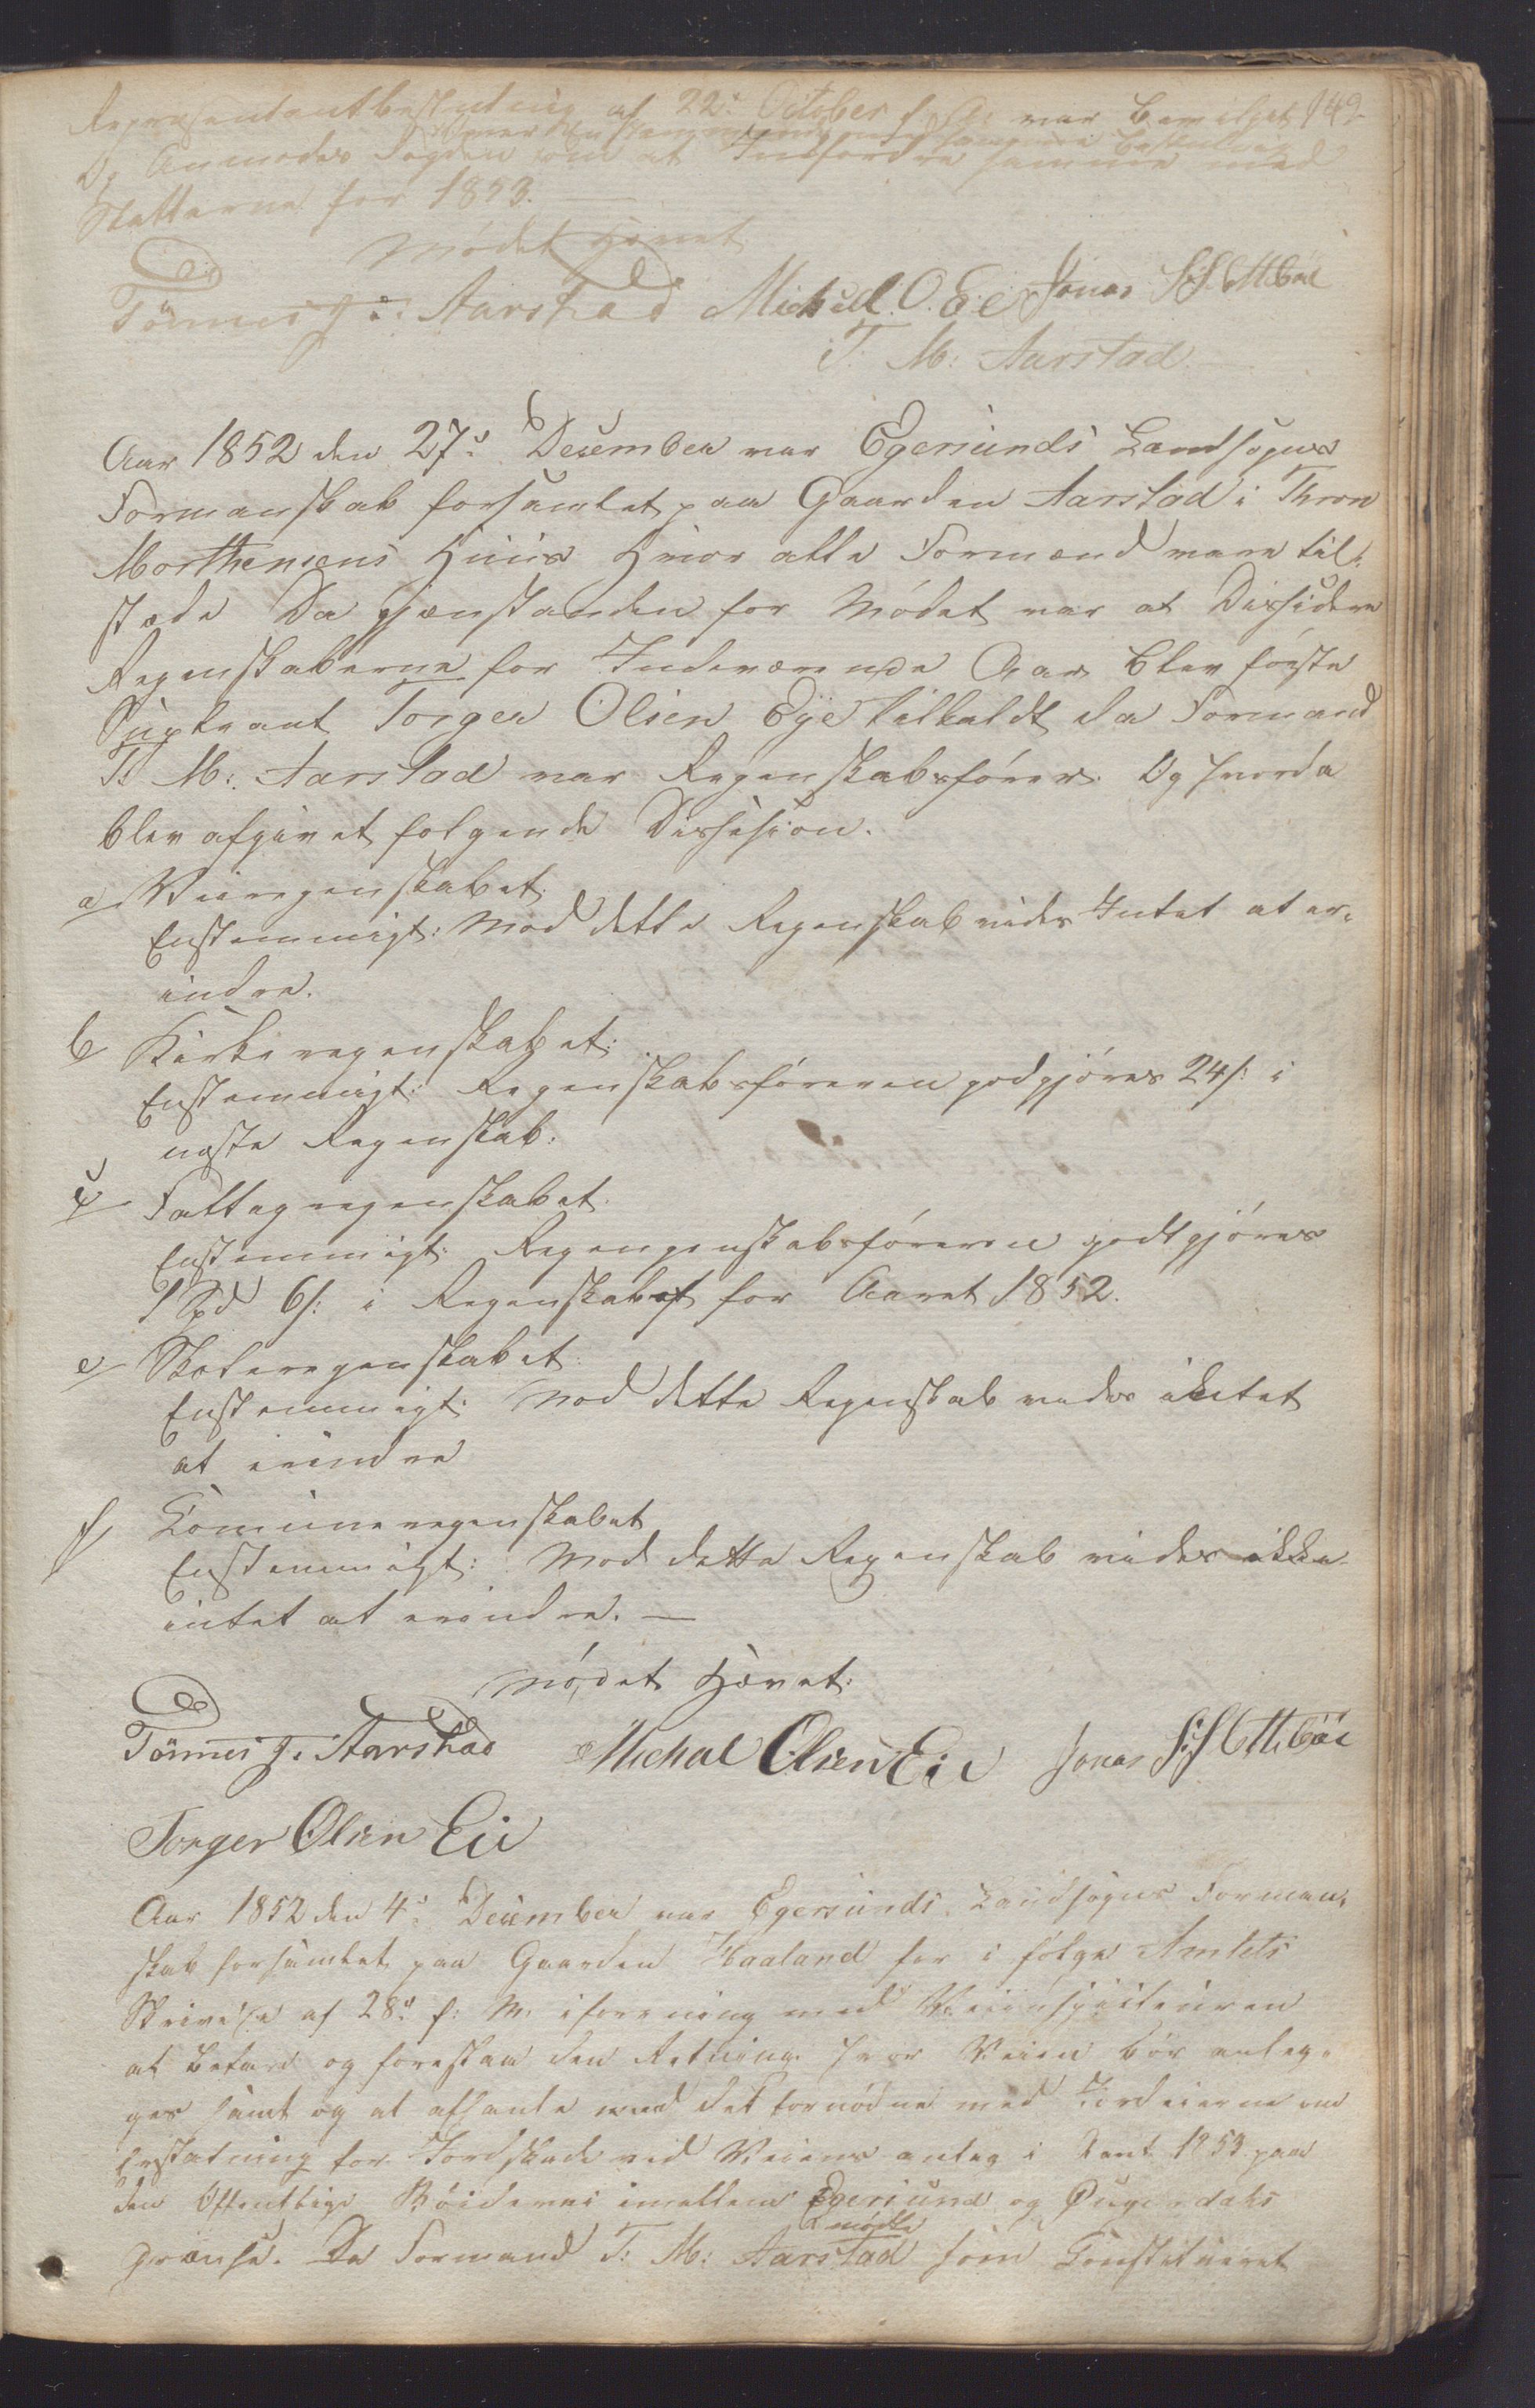 149
Repræsentantbeslutning af 22d October f. A. var bevilget
Og Anmodes Fogden om at Indfordre samme med
Skatterne for 1853. —
Mødet hævet
Tönnes J: Aarstad Michael. O. Eie Jonas S: S: Ottebøe
T. M: Aarstad
Aar 1852 den 27d December var Egersunds Landsogns
Formanskab forsamlet paa Gaarden Aarstad i Thron
Morthensens Huus Hvor alle Formænd vare til-
stæde Da gjenstanden for Mødet var at Dessidere
Regenskaberne for Indeværende Aar blev første
Supleant Torger Olsen Eye tilkaldt da Formand
T. M: Aarstad var Regenskabsfører. Og hvorda
blev afgivet følgende Dessision.
a Veiregenskabet.
Enstemmigt: Mod dette Regenskab vides Intet at er-
indre.
b Kirkeregenskabet:
Enstemmigt: Regenskabsføreren godgjøres 24 s: i
næste Regenskab.
c Fattegregenskabet.
Enstemmigt: Regengenskabsføreren godtgjøres
1 Spd 6 s: i Regenskabet for Aaret 1852.
e Skoleregenskabet:
Enstemmigt: Mod dette Regenskab vides intet
at erindre
f Comuneregenskabet
Enstemmigt: Mod dette Regenskab vides ikke
intet at erindre. —
Mødet Hævet:
Tönnes J. Aarstad Michal Olsen Eie Jonas S: S: Ottebøe
Torger Olsen Eie
Aar 1852 den 4d December var Egersunds Landsogns Forman-
skab forsamlet paa Gaarden Haaland for i følge Amtets
Skrivelse af 28d f: M. iforening med Veiinspecteuren
at befare og foreslaa den Retning hvor Veien bør anleg-
ges samt og at afhandle med det fornødne med Jordeierne om
Erstatning for Jordskade ved Veiens anlæg i Aaret 1853 paa
den Offentlige Rideveie imellem Egersund og Øugendahls
grænse. Da Formand T: M: Aarstad mødte som Constitueret